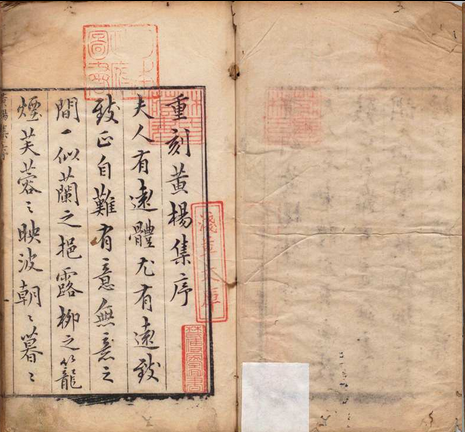 重刻黃楊集序
夫人有遠體尤有遠致
致正自難有意無意之
間一似蘭之挹露柳之籠
煙芙蓉之映波朝々暮々
淺草文庫